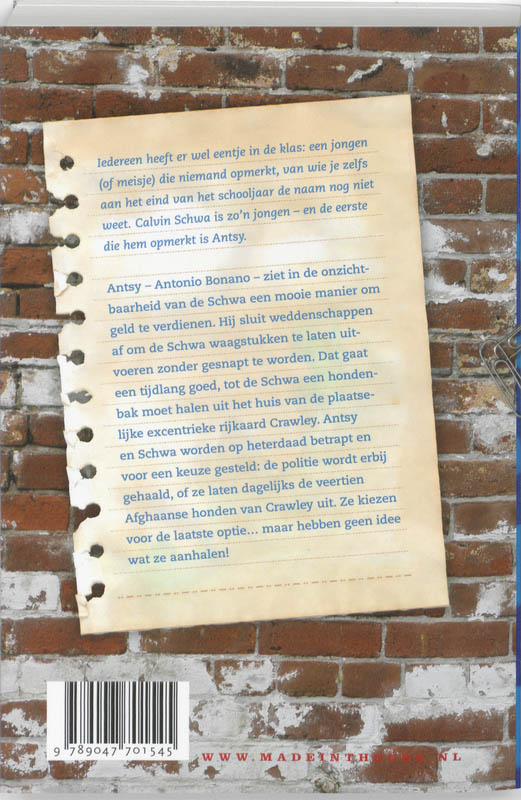 Iedereen heeft er wel eentje in de klas: een jongen
(of meisje) die niemand opmerkt, van wie je zelfs
aan het eind van het schooljaar de naam nog niet
weet. Calvin Schwa is zo'n jongen – en de eerste
die hem opmerkt is Antsy.
Antsy – Antonio Bonano – ziet in de onzicht-
baarheid van de Schwa een mooie manier om
geld te verdienen. Hij sluit weddenschappen
af om de Schwa waagstukken te laten uit-
voeren zonder gesnapt te worden. Dat gaat
een tijdlang goed, tot de Schwa een honden-
bak moet halen uit het huis van de plaatse-
lijke excentrieke rijkaard Crawley. Antsy
en Schwa worden op heterdaad betrapt en
voor een keuze gesteld: de politie wordt erbij
gehaald, of ze laten dagelijks de veertien
Afghaanse honden van Crawley uit. Ze kiezen
voor de laatste optie... maar hebben geen idee
wat ze aanhalen!
9 789047 701545